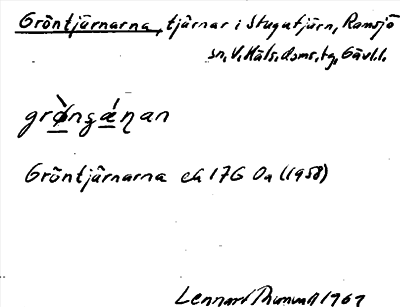 Gröntjärnarna, tjärnar i Stugutjärn, Ramsjö
sn, V. Häls. doms.tg, Gävl.l.
grø̀nʂǽɳan
Gröntjärnarna ek 17G Oa (1958)
Lennart 1967